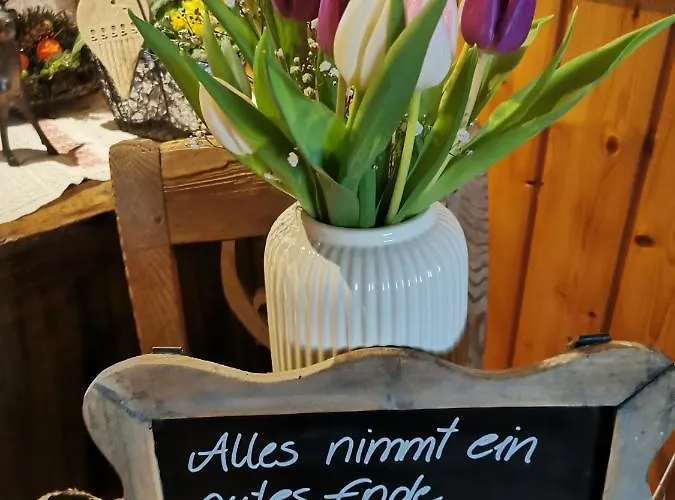 Alles nimmt ein
gutes Ende